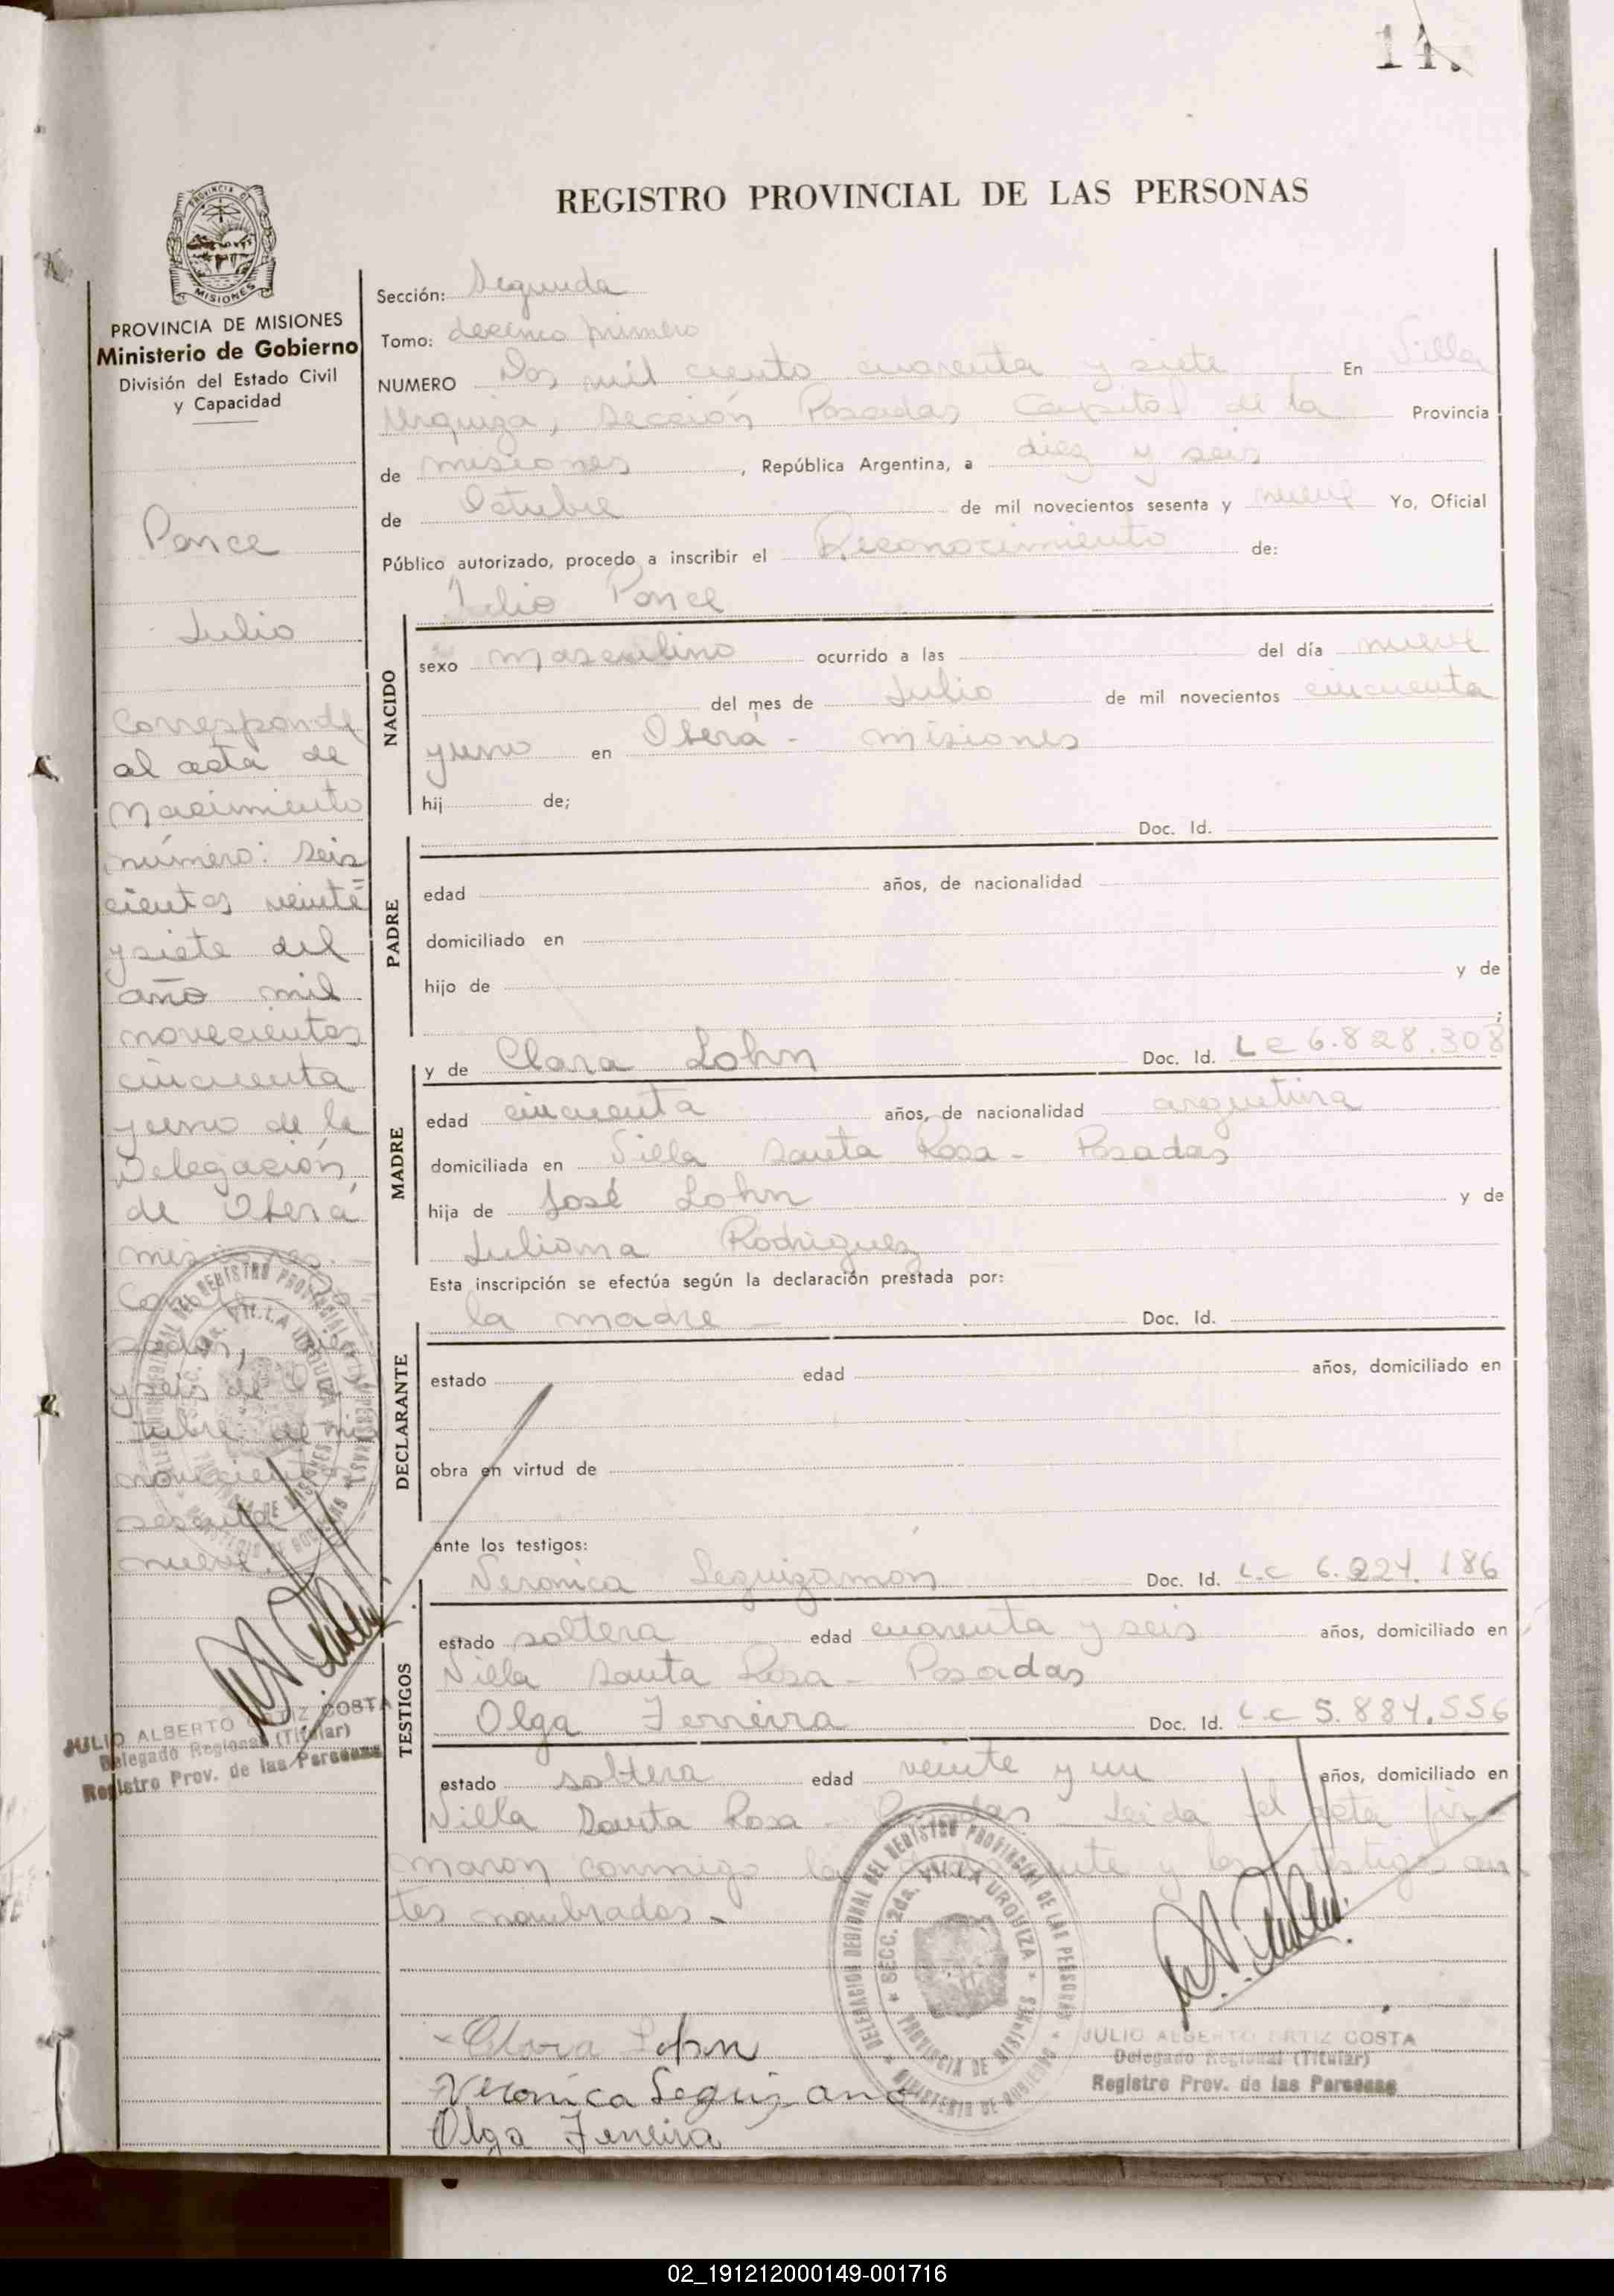 14.
REGISTRO PROVINCIAL DE LAS PERSONAS
PROVINCIA DE MISIONES
MISIONES
PROVINCIA DE MISIONES
Ministerio de Gobierno
División del Estado Civil
y Capacidad
Ponce
Julio
Corresponde
al acta de
Nacimiento
número: seis
cientos veinte
y siete del
año mil
novecientos
cincuenta
y uno de la
Delegación
de Oberá
misiones.
y seis de Oc
tubre de mil
novecientos
sesenta
nueve.
JULIO ALBERTO ORTIZ COSTA
Delegado Regional (Titular)
Registro Prov. de las Personas
Sección: Segunda
Tomo: decimo primero
NUMERO Dos mil ciento cuarenta y siete En Villa
Urquiza, Sección Posadas Capital de la Provincia
de misiones, República Argentina, a diez y seis
de Octubre de mil novecientos sesenta y nueve Yo, Oficial
Público autorizado, procedo a inscribir el Reconocimiento de:
Julio Ponce
NACIDO
sexo masculino ocurrido a las del día nueve
del mes de Julio de mil novecientos cincuenta
y uno en Oberá - misiones
hij de;
Doc. Id.
PADRE
edad años, de nacionalidad
domiciliado en
hijo de y de
;
MADRE
y de Clara Lohn Doc. Id. LC 6.828.308
edad cincuenta años, de nacionalidad argentina
domiciliada en Villa Santa Rosa - Posadas
hija de José Lohn y de
Juliana Rodriguez
Esta inscripción se efectúa según la declaración prestada por:
la madre - Doc. Id.
DECLARANTE
estado edad años, domiciliado en
obra en virtud de
ante los testigos:
TESTIGOS
Veronica Leguizamon Doc. Id. L.C 6.224.186
estado soltera edad cuarenta y seis años, domiciliado en
Villa Santa Rosa - Posadas
Olga Ferreira Doc. Id. L.C 5.884.556
estado soltera edad veinte y un años, domiciliado en
Villa Santa Rosa - Posadas - Leida el acta fir
maron conmigo la y los testigos an
tes nombrados.
DELEGACION REGIONAL DEL REGISTRO PROVINCIAL DE LAS PERSONAS
SECC. 2da. VILLA URQUIZA
PROVINCIA DE MISIONES
MINISTERIO DE GOBIERNO
Clara Lohn
Veronica Leguizamo
Olga Ferreira
JULIO ALBERTO ORTIZ COSTA
Delegado Regional (Titular)
Registro Prov. de las Personas
02_191212000149-001716